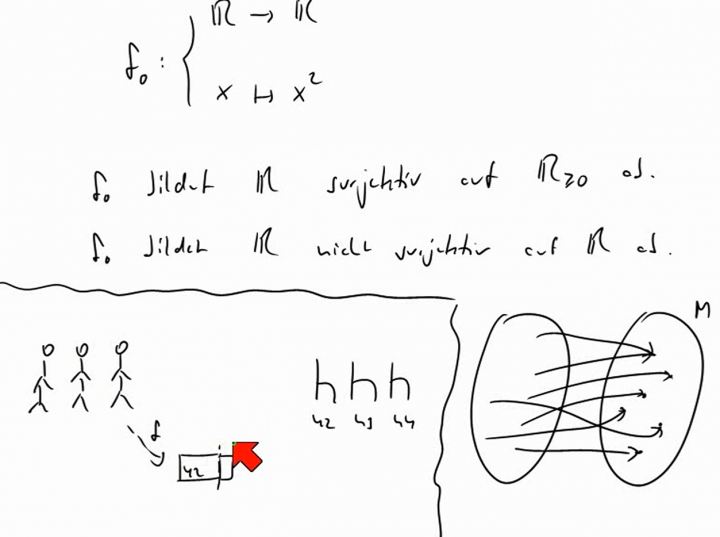 ℝ → ℝ
f₀ :
x ↦ x²
f₀ bildet ℝ surjektiv auf ℝ≥0 ab.
f₀ bildet ℝ nicht surjektiv auf ℝ ab.
M
42 43 44
f
42